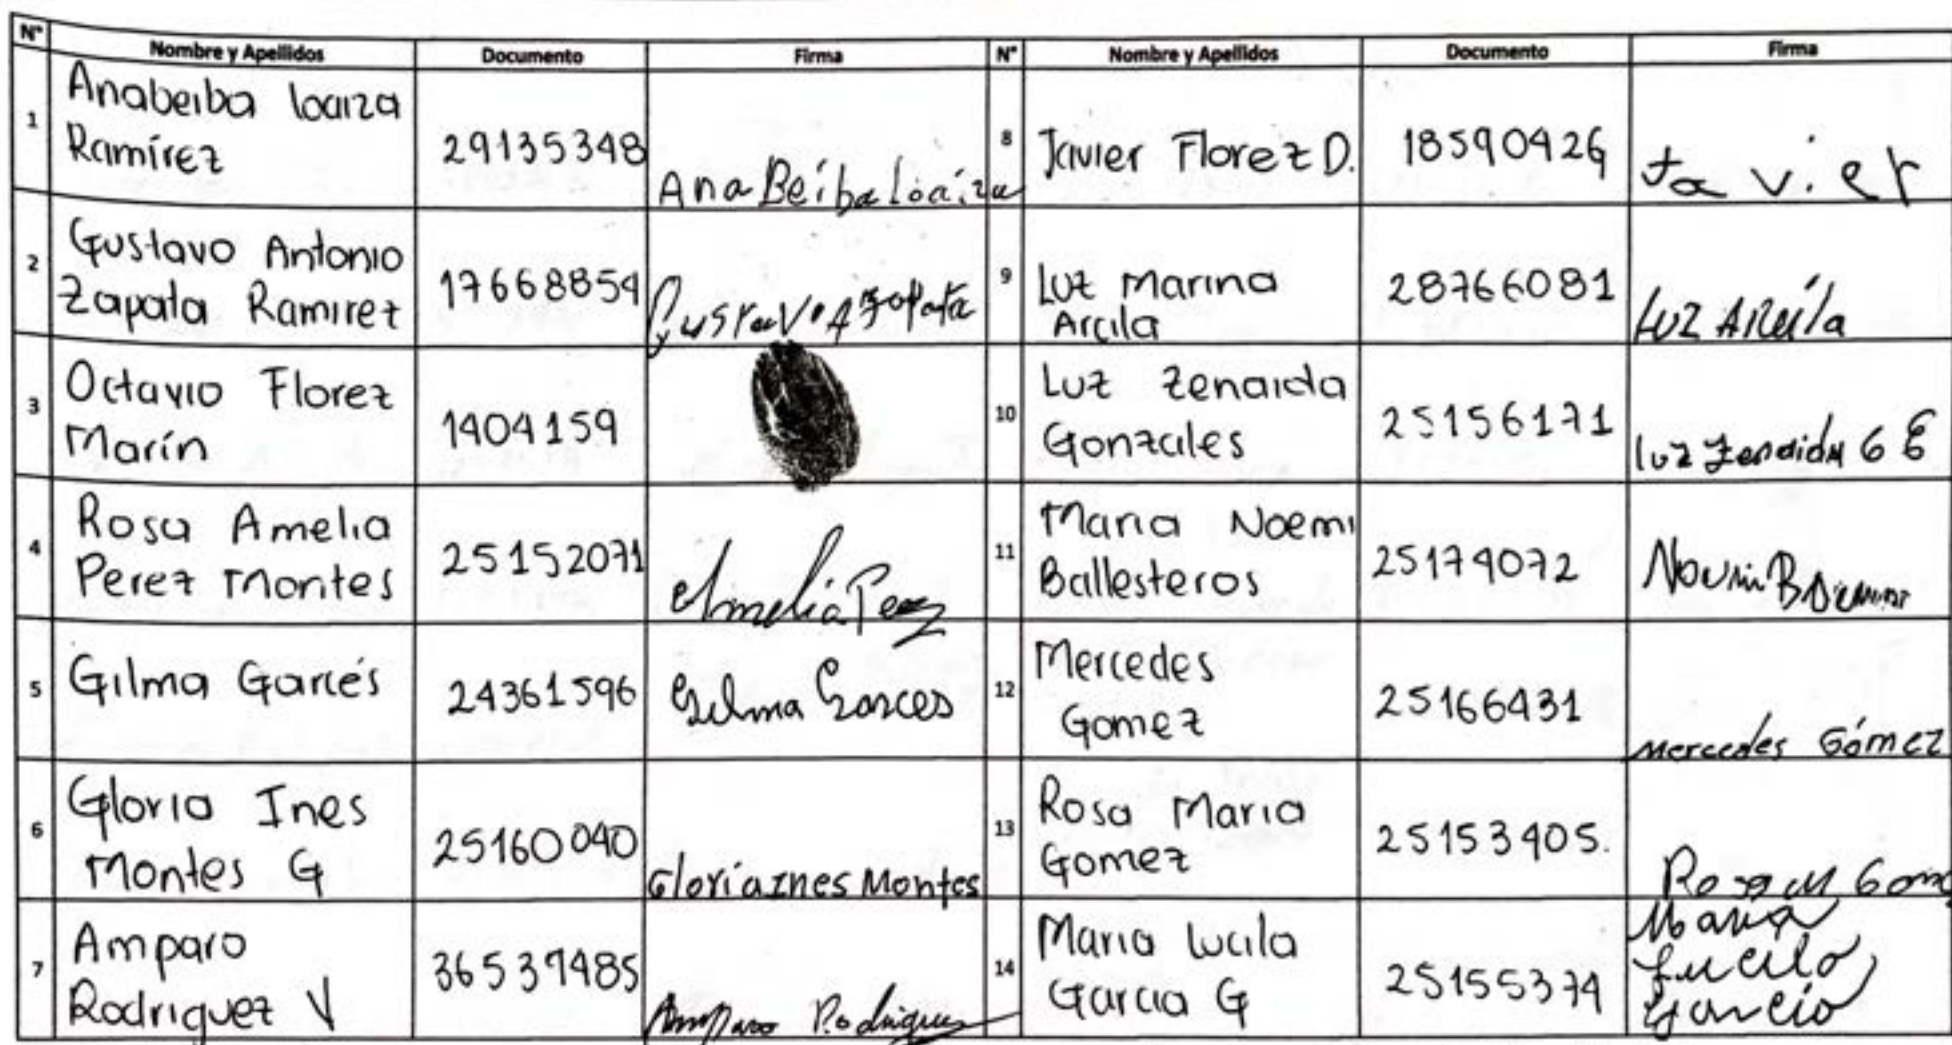 N° Nombre y Apellidos Documento Firma N° Nombre y Apellidos Documento Firma
1 Anabeiba loaiza
Ramírez 29135348 Ana Beiba loaiza
8 Javier Florez D. 18590426 Javier
2 Gustavo Antonio
Zapata Ramirez 17668854 Gustavo A Zapata
9 Luz Marina
Arcila 28766081 Luz Arcila
3 Octavio Florez
Marín 1404159
10 Luz Zenaida
Gonzales 25156171 luz Zenaida G E
4 Rosa Amelia
Perez Montes 25152071 Amelia Perez
11 Maria Noemi
Ballesteros 25174072
5 Gilma Garcés 24361596 Gilma Garces
12 Mercedes
Gomez 25166431 Mercedes Gómez
6 Gloria Ines
Montes G 25160040 Gloria Ines Montes
13 Rosa Maria
Gomez 25153405. Rosa M Gome
7 Amparo
Rodriguez V 36537485 Amparo Rodriguez
14 Maria Lucila
Garcia G 25155374 Maria
Lucila
Garcia